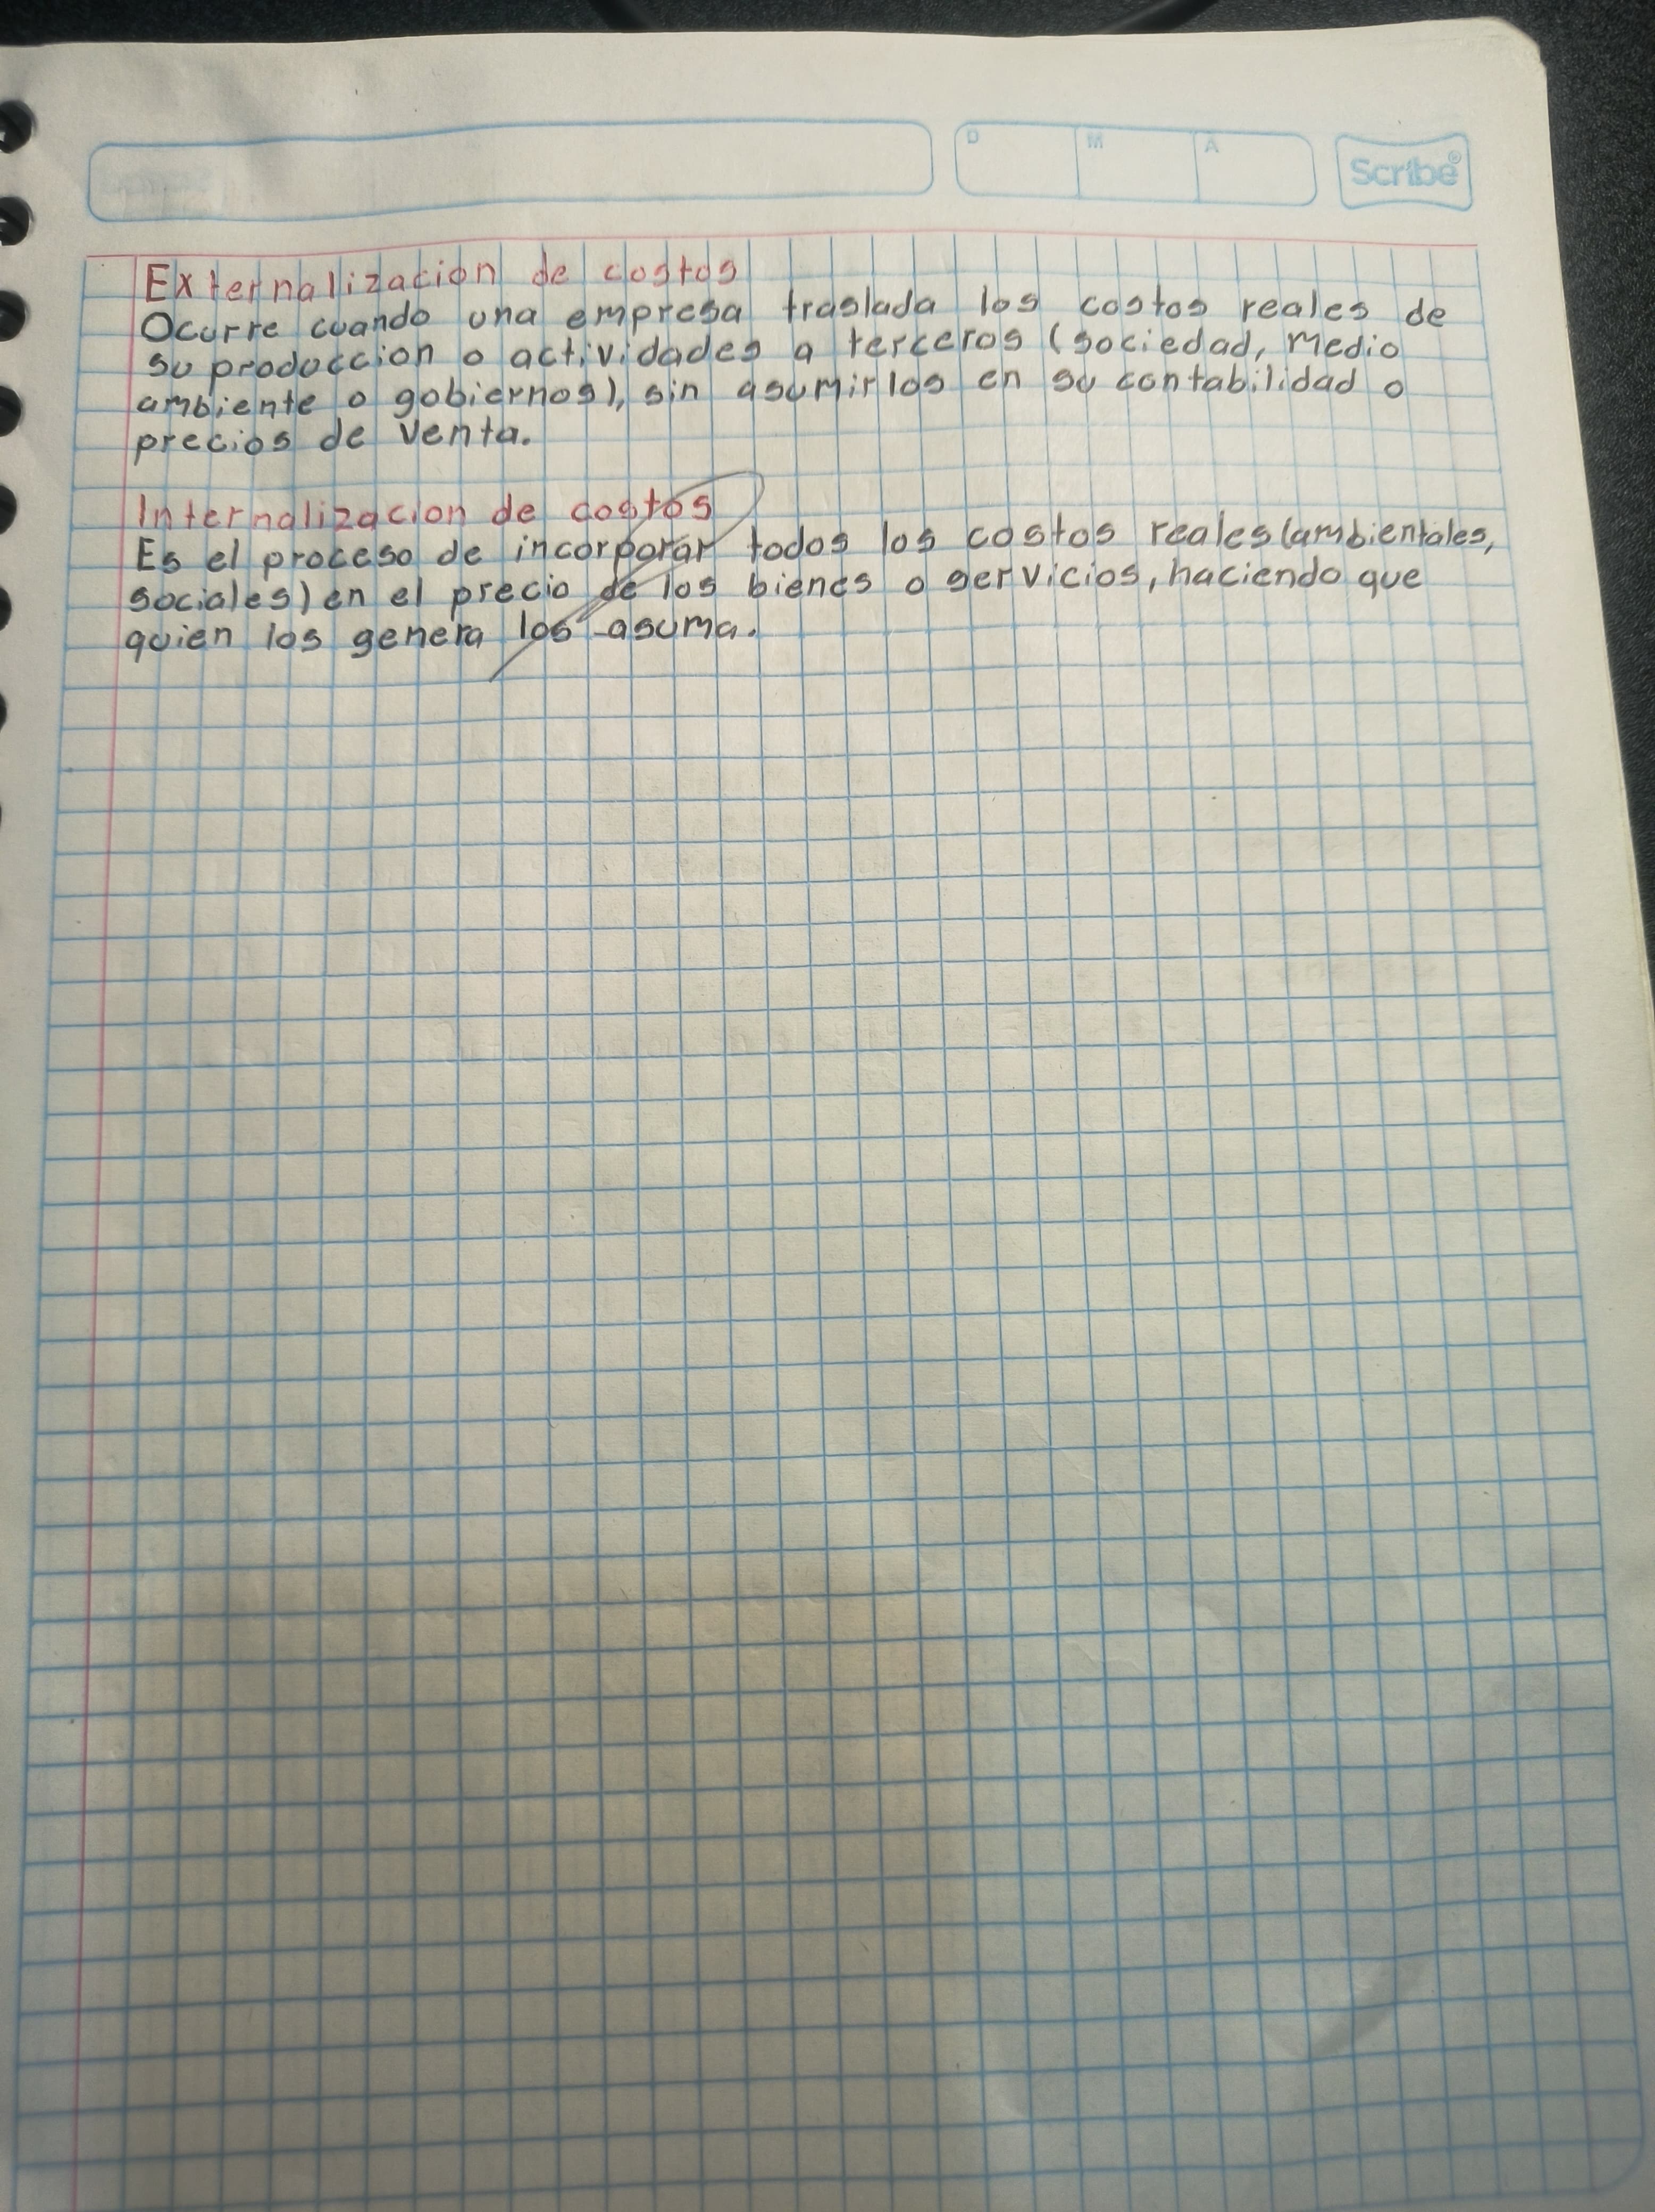 D M A
Scribe®
Externalizacion de costos
Ocurre cuando una empresa traslada los costos reales de
su produccion o actividades a terceros (sociedad, Medio
ambiente o gobiernos), sin asumirlos en su contabilidad o
precios de venta.
Internalizacion de costos
Es el proceso de incorporar todos los costos reales (ambientales,
sociales) en el precio de los bienes o servicios, haciendo que
quien los genera los asuma.